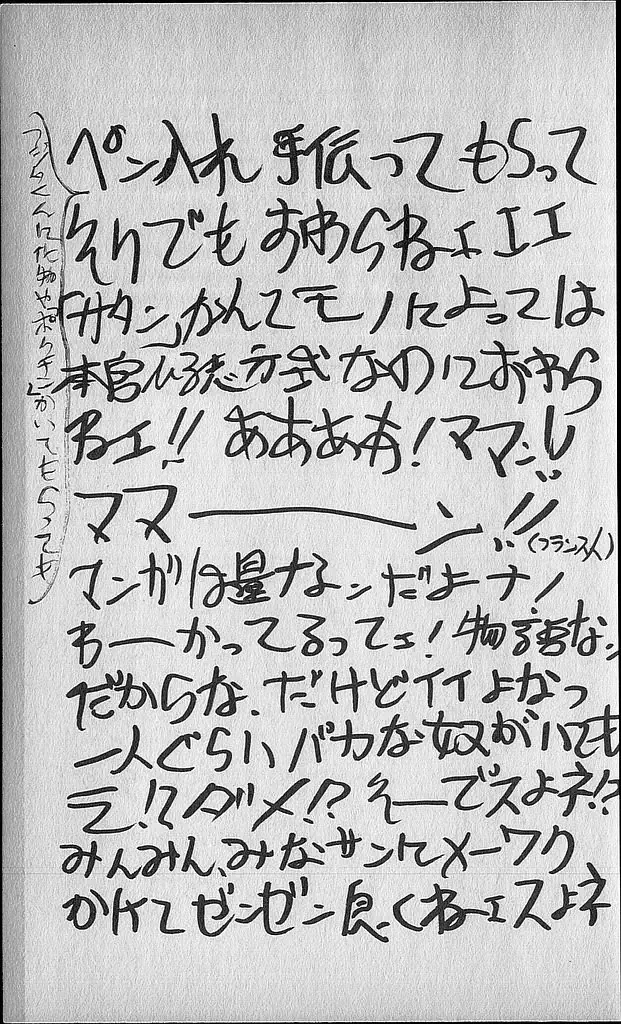 ペン入れ手伝ってもらって
それでもおわらねェエエ
「サタン」なんてモノによっては
本宮ひろ志方式なのにおわら
ねェ!! ああああ!ママン!!
ママーーーン!!(フランス人)
マンガは量ナんだよーナ!
わーかってるってェ!物語なん
だからな、だけどイイよなっ
一人ぐらいバカな奴がいても
ラ!?ダメ!?そーでスよネ!?
みんみん、みなサンにメーワク
かけてゼンゼン良くねーェスよネ
(フジタくんに化物やポクチンかいてもらっても)